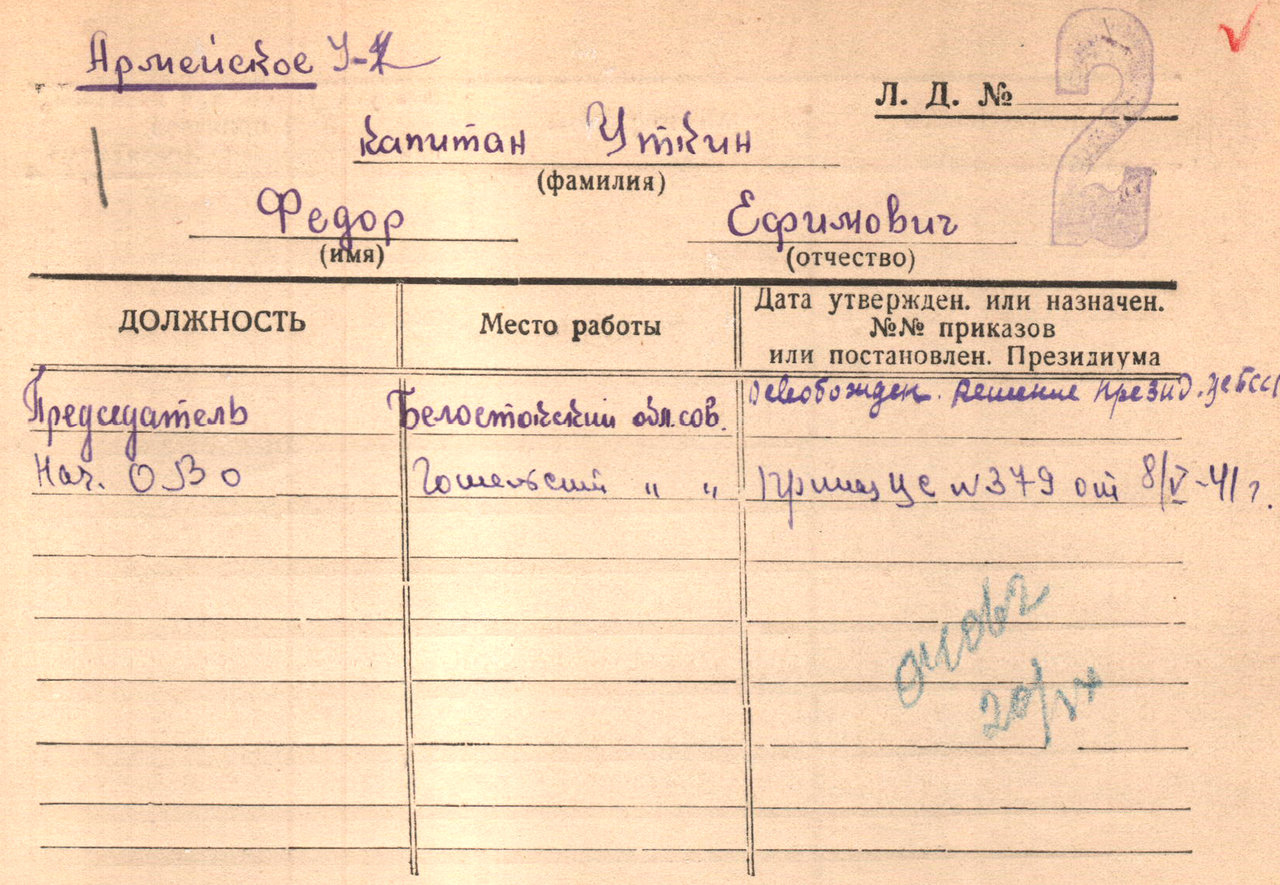 Армейское У-К
Л. Д. №
2
капитан Уткин
(фамилия)
Федор Ефимович
(имя) (отчество)
ДОЛЖНОСТЬ
Место работы
Дата утвержден. или назначен.
№№ приказов
или постановлен. Президиума
Председатель Белостокский обл.сов. Освобожден. Решение Презид.
Нач. ОВО Гомельский " " Приказ ЦС №379 от 8/V-41г.
20/IX